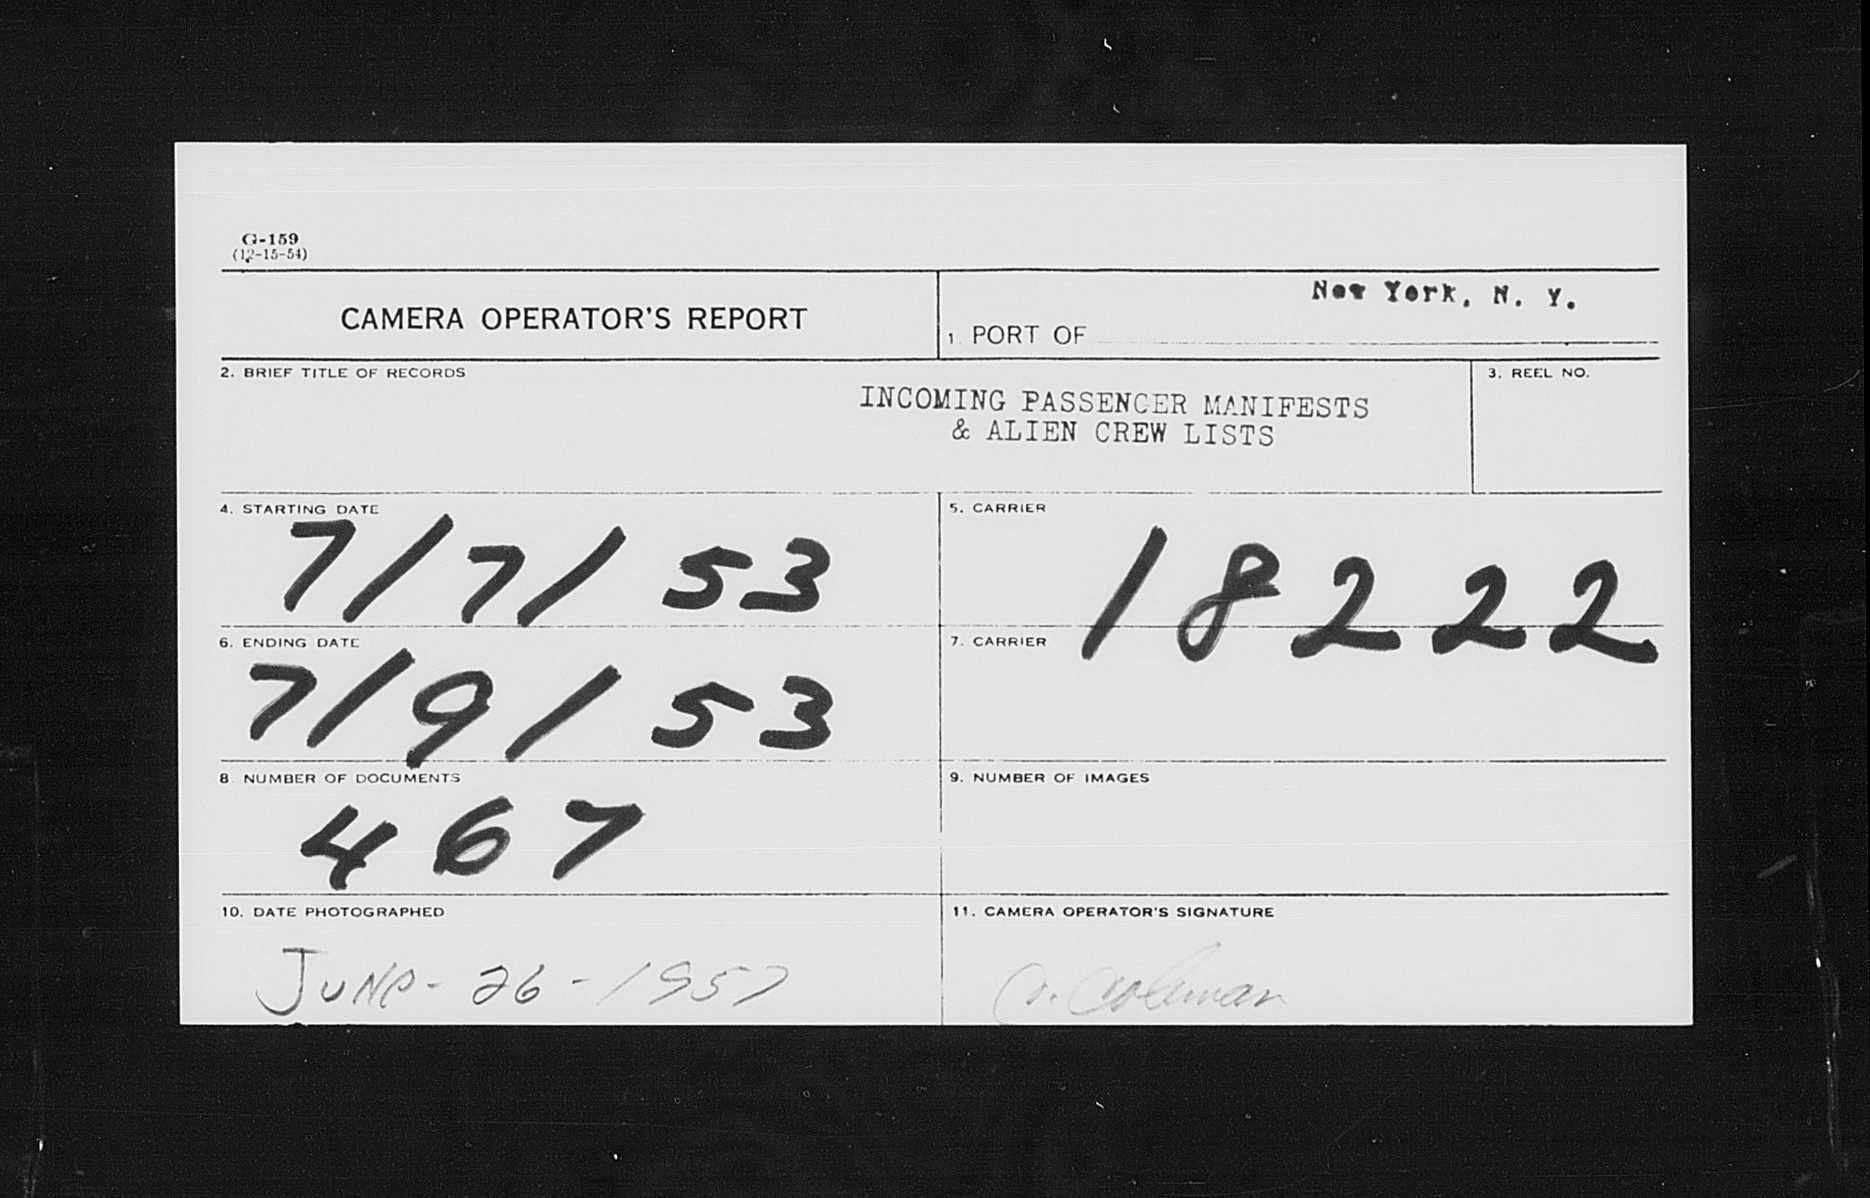 G-159
(12-15-54)
CAMERA OPERATOR'S REPORT
1. PORT OF New York, N. Y.
2. BRIEF TITLE OF RECORDS
INCOMING PASSENGER MANIFESTS
& ALIEN CREW LISTS
3. REEL NO.
4. STARTING DATE
7/7/53
5. CARRIER
18222
6. ENDING DATE
7/9/53
7. CARRIER
8. NUMBER OF DOCUMENTS
467
9. NUMBER OF IMAGES
10. DATE PHOTOGRAPHED
JUNe-26-1957
11. CAMERA OPERATOR'S SIGNATURE
Coleman